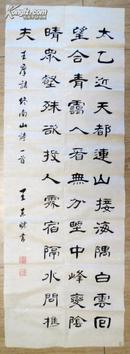 太乙近天都連山接海隅白雲回
望合青靄入看無分埜中峰變陰
晴眾壑殊欲投人處宿隔水問樵
夫
王摩詰終南山詩一首
書